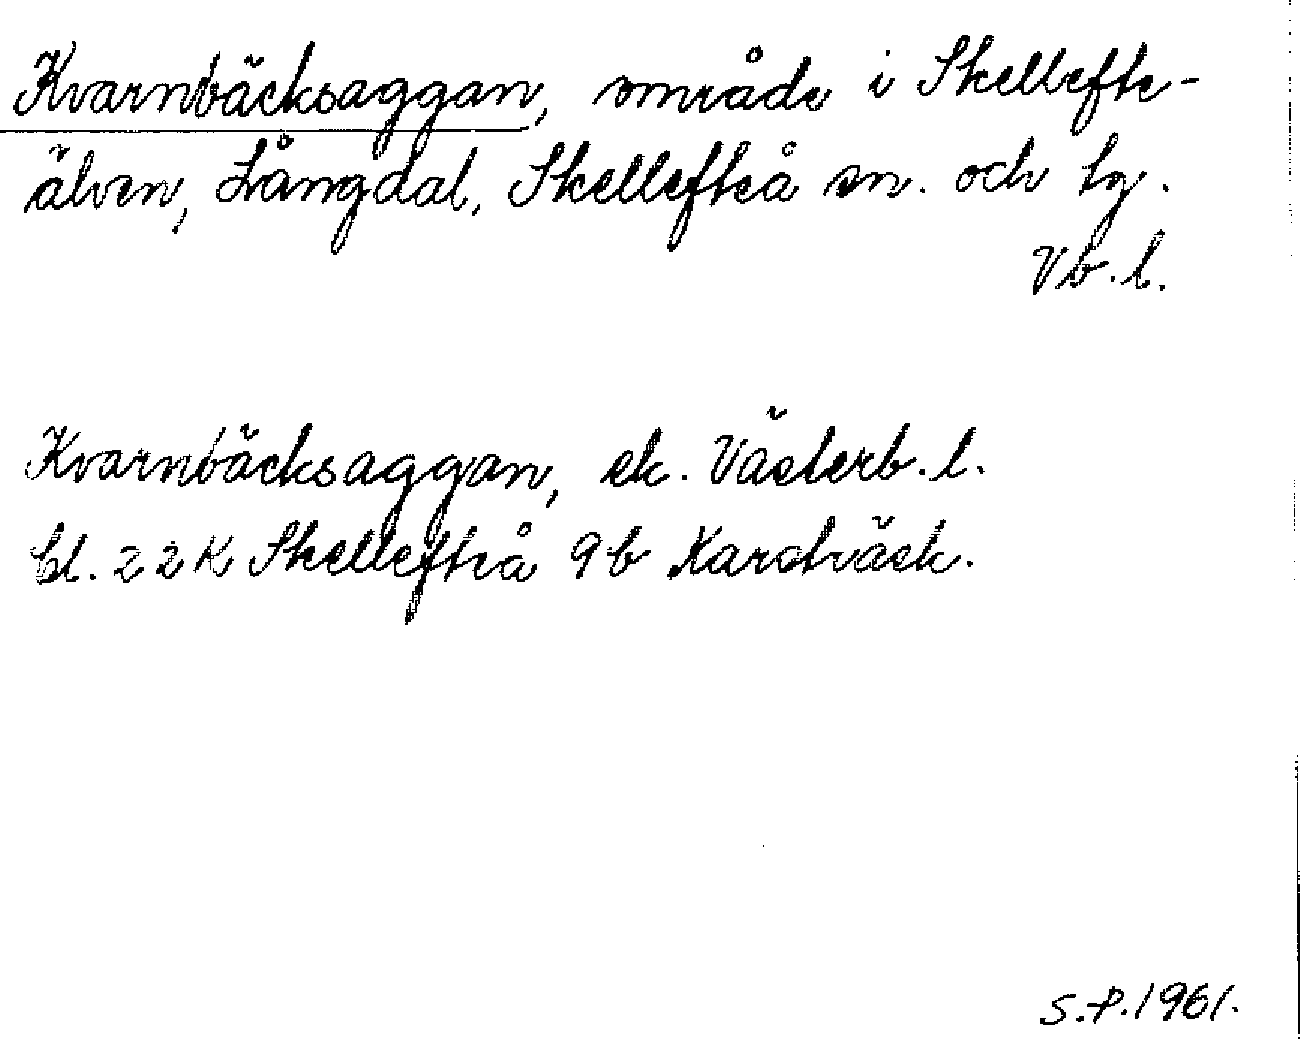 Kvarnbäcksaggan, område i Skellefte-
älven, Långdal, Skellefteå sn. och tg.
Vb. l.
Kvarnbäcksaggan, ek. Västerb. l.
bl. 22K Skellefteå 9b Karsträsk.
S.P. 1961.